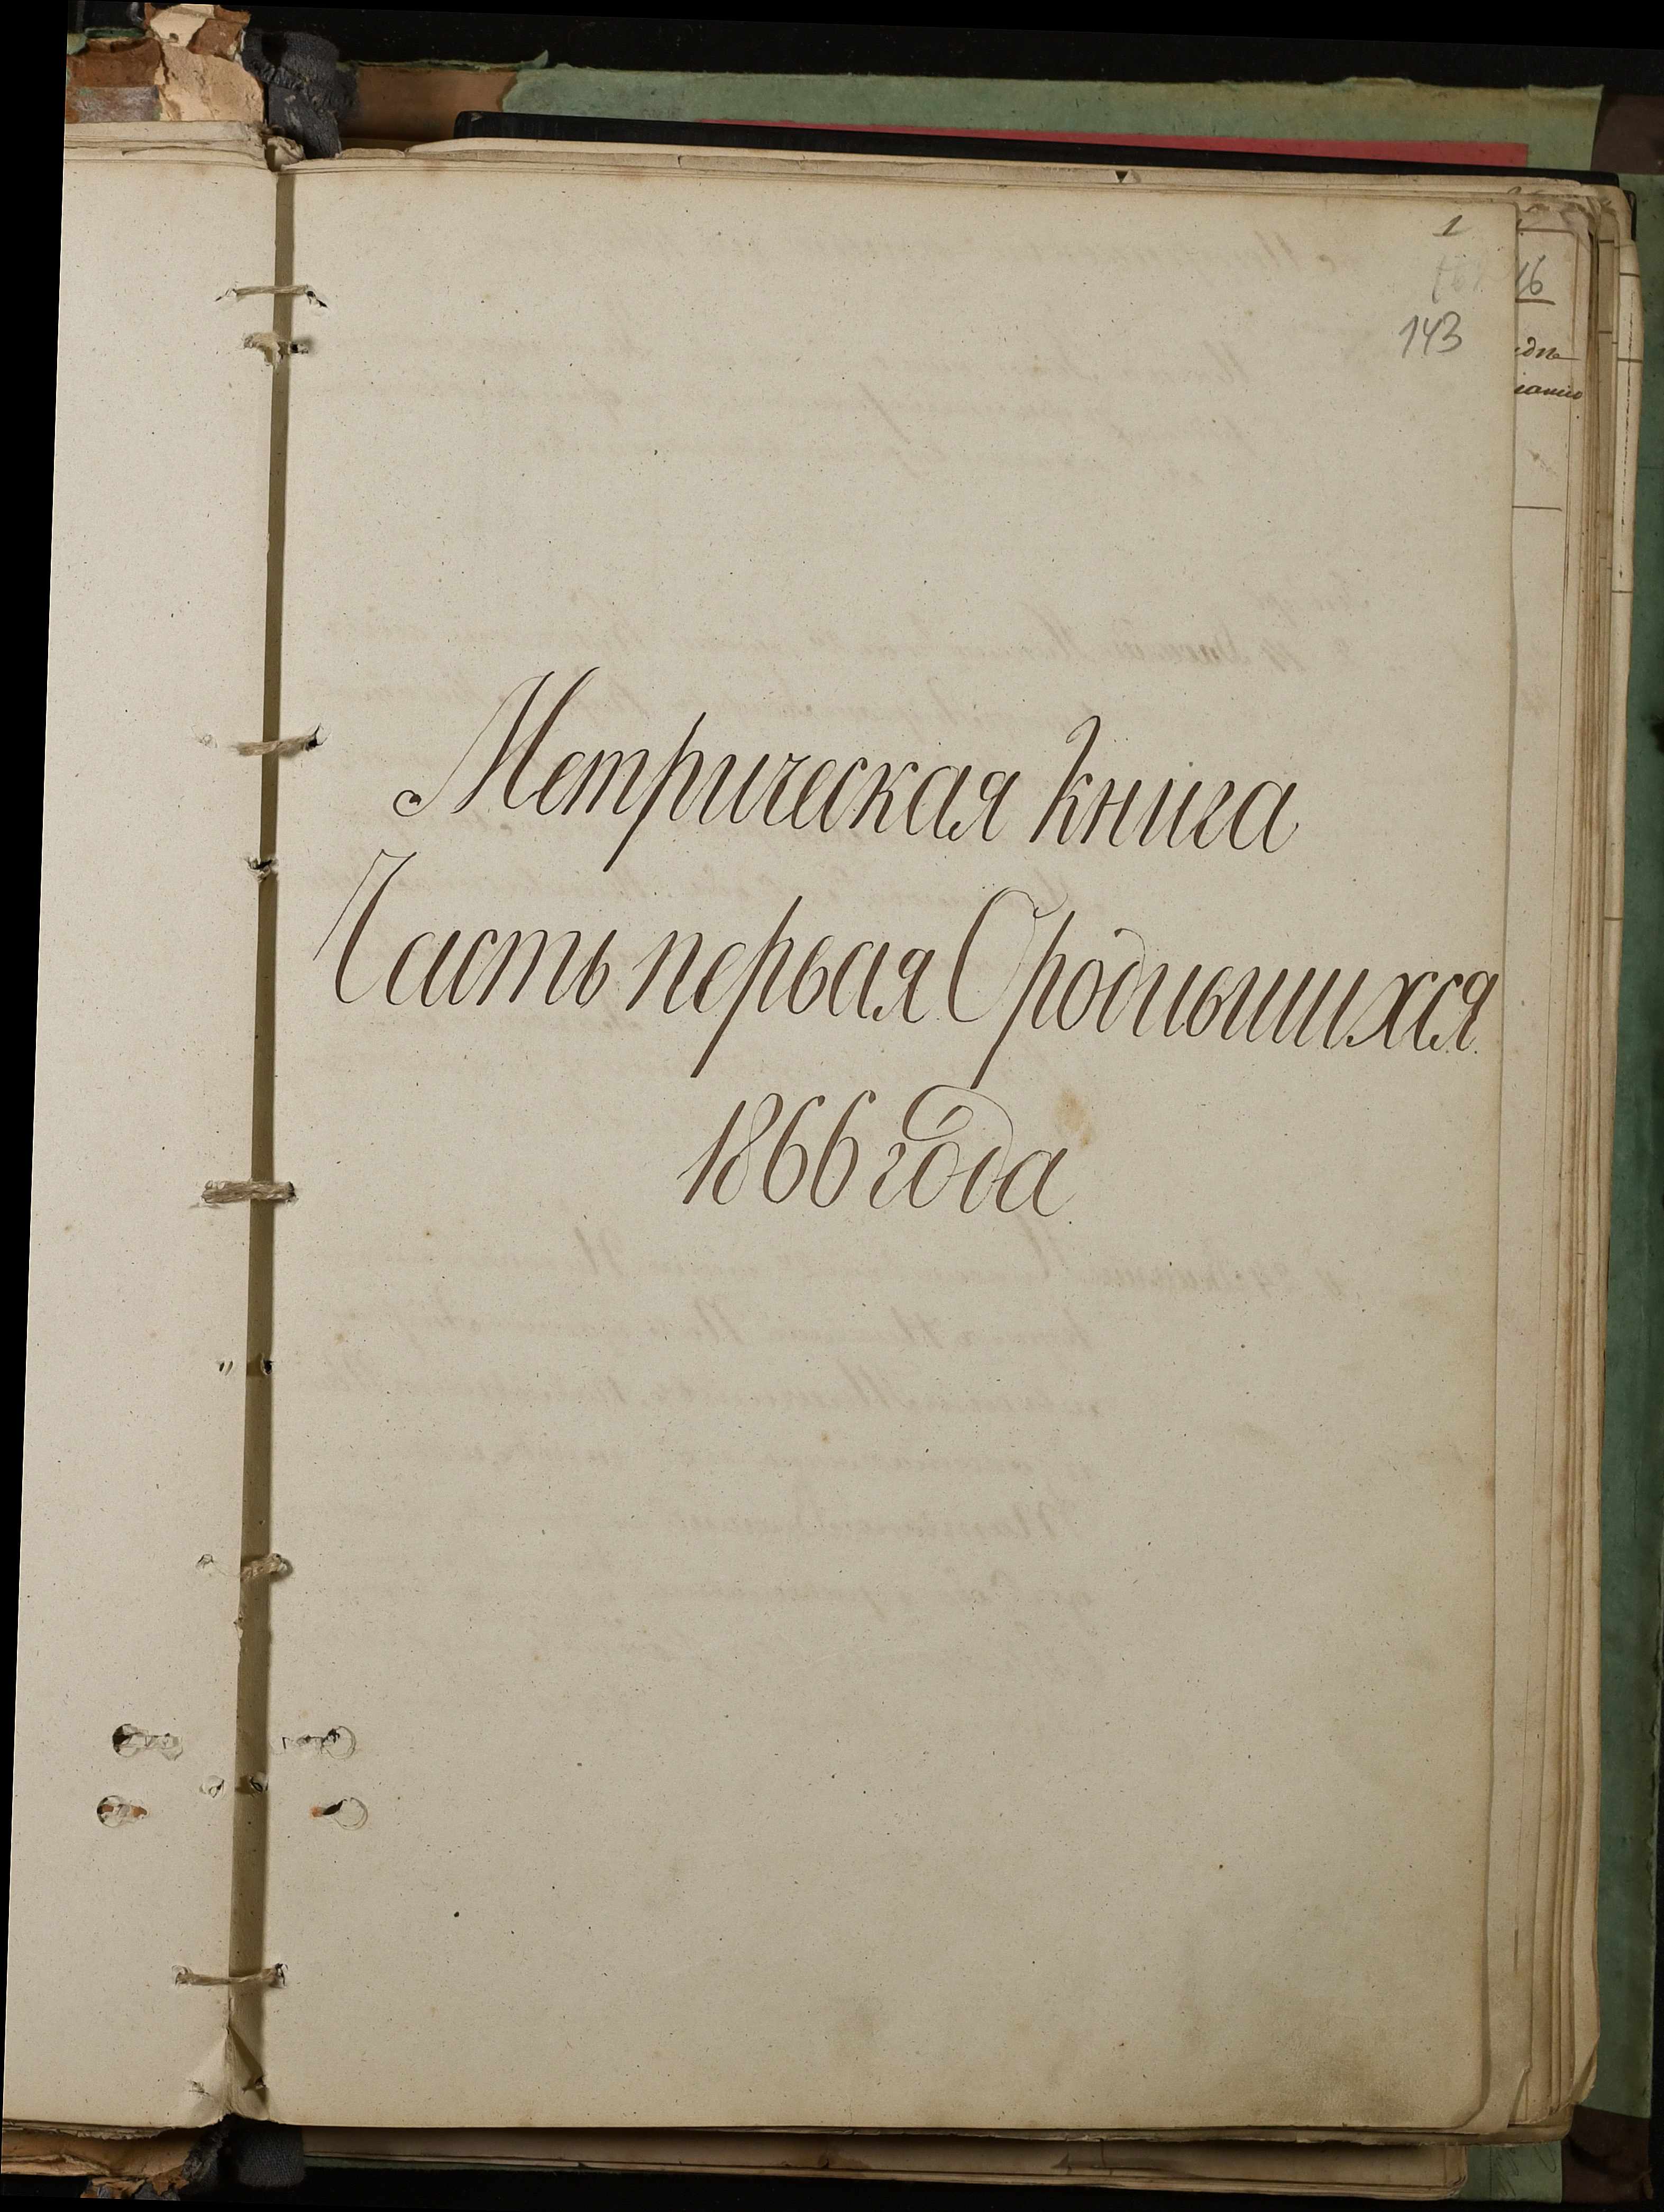 1
143
16
Метрическая Книга
Часть первая О родившихся
1866 года